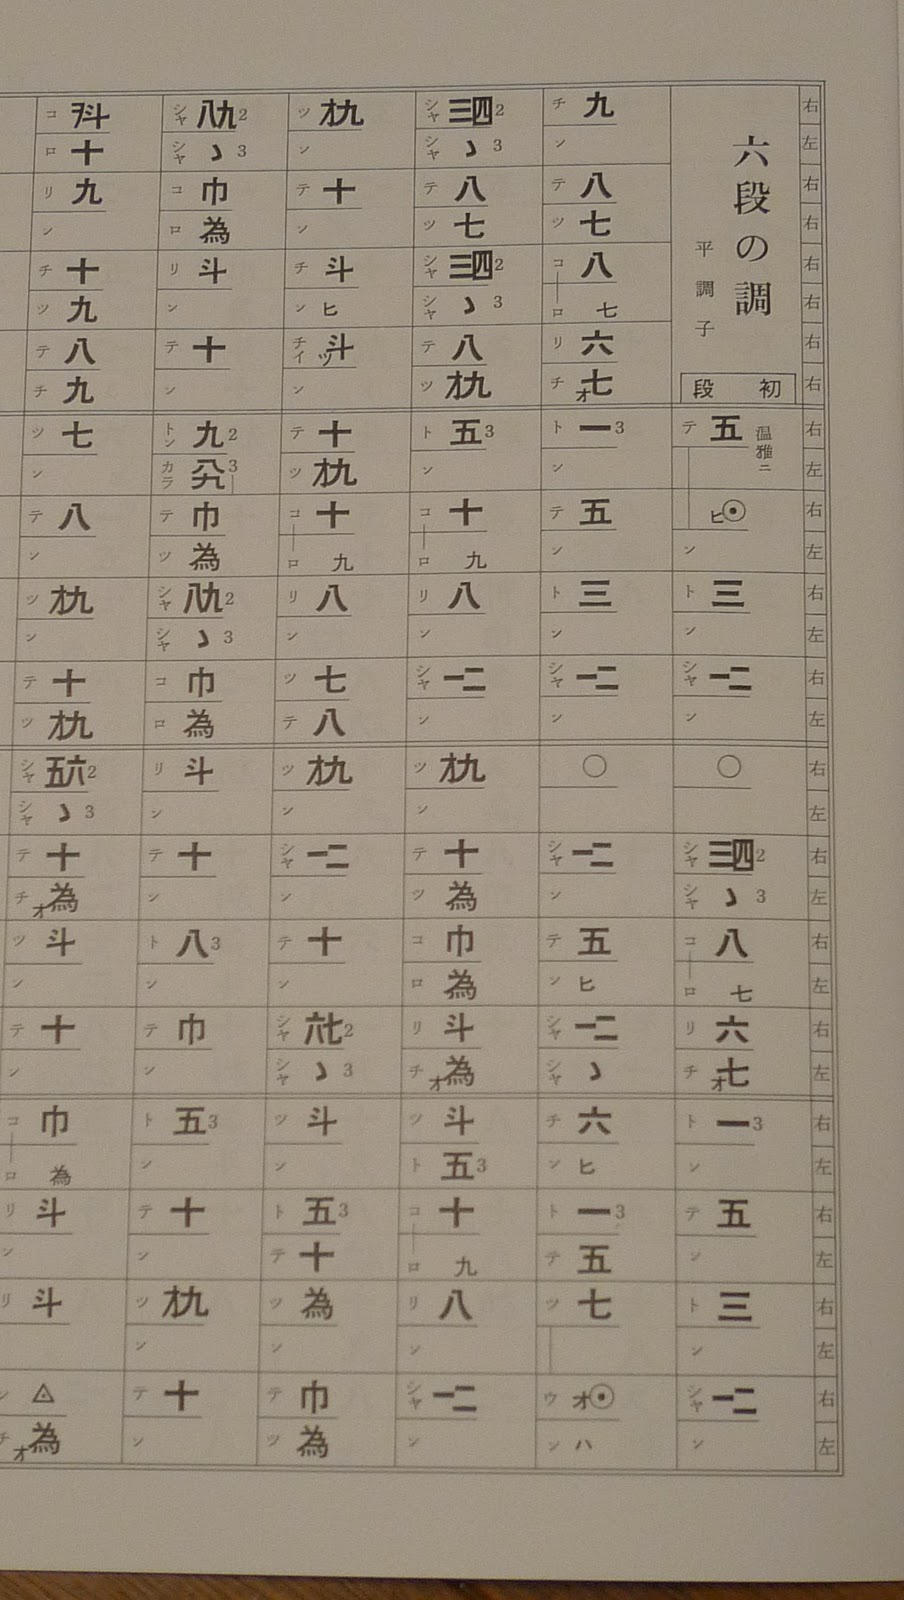 右 左 右 右 右 右 右 右 右 左 右 左 右 左 右 左 右 左 右 左 右 左 右 左 右 左 右 左 右 左 右 左
六段の調
平調子
初段
温雅ニ
テ五 ヒ⊙ ン ト三 ン シャ一二 ン ○ シャ三四2 シャヽ3 コ八 ロ七 リ六 チオ七 ト一3 ン テ五 ン ト三 ン シャ一二 ン
チ九 ン テ八 ツ七 コ八 ロ七 リ六 チオ七 ト一3 ン テ五 ン ト三 ン シャ一二 ン ○ シャ一二 ン テ五 ンヒ シャ一二 シャヽ チ六 ンヒ ト一3 テ五 ツ七 ウオ⊙ ンハ
シャ三四2 シャヽ3 テ八 ツ七 シャ三四2 シャヽ3 テ八 ツオ九 ト五3 ン コ十 ロ九 リ八 ン シャ一二 ン ツオ九 ン テ十 ツ為 コ巾 ロ為 リ斗 チオ為 ツ斗 ト五3 コ十 ロ九 リ八 ン シャ一二 ン
ツオ九 ン テ十 ン チ斗 ンヒ チイツ斗 ン テ十 ツオ九 コ十 ロ九 リ八 ン ツ七 テ八 ツオ九 ン シャ一二 ン テ十 ン シャ六七2 シャヽ3 ツ斗 ン ト五3 テ十 ツ為 ン テ巾 ツ為
シャ八九2 シャヽ3 コ巾 ロ為 リ斗 ン テ十 ン トン九2 カラ八九3 テ巾 ツ為 シャ八九2 シャヽ3 コ巾 ロ為 リ斗 ン テ十 ン ト八3 ン テ巾 ン ト五3 ン テ十 ン ツオ九 ン テ十 ン
コヲ斗 ロ十 リ九 ン チ十 ツ九 テ八 チ九 ツ七 ン テ八 ン ツオ九 ン テ十 ツオ九 シャ五六2 シャヽ3 テ十 チオ為 ツ斗 ン テ十 ン コ巾 ロ為 リ斗 ン リ斗 ン◬ チオ為